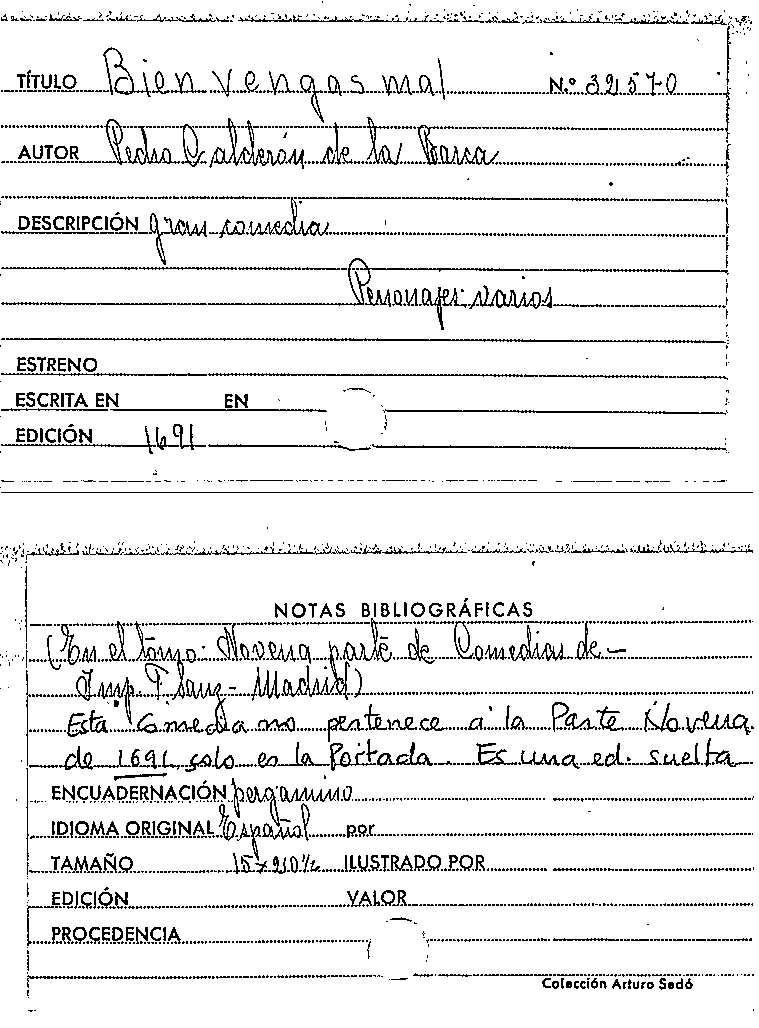 TÍTULO Bien vengas mal N.º 32570
AUTOR Pedro Calderón de la Barca
DESCRIPCIÓN gran comedia
Personajes: varios
ESTRENO
ESCRITA EN EN
EDICIÓN 1691
NOTAS BIBLIOGRÁFICAS
(En el tomo: Novena parte de Comedias de-
Imp. F. Sanz - Madrid)
Esta Comedia no pertenece a la Parte Novena
de 1691 solo es la Portada. Es una ed. suelta
ENCUADERNACIÓN pergamino
IDIOMA ORIGINAL Español por
TAMAÑO ILUSTRADO POR
EDICIÓN VALOR
PROCEDENCIA
Colección Arturo Sedó